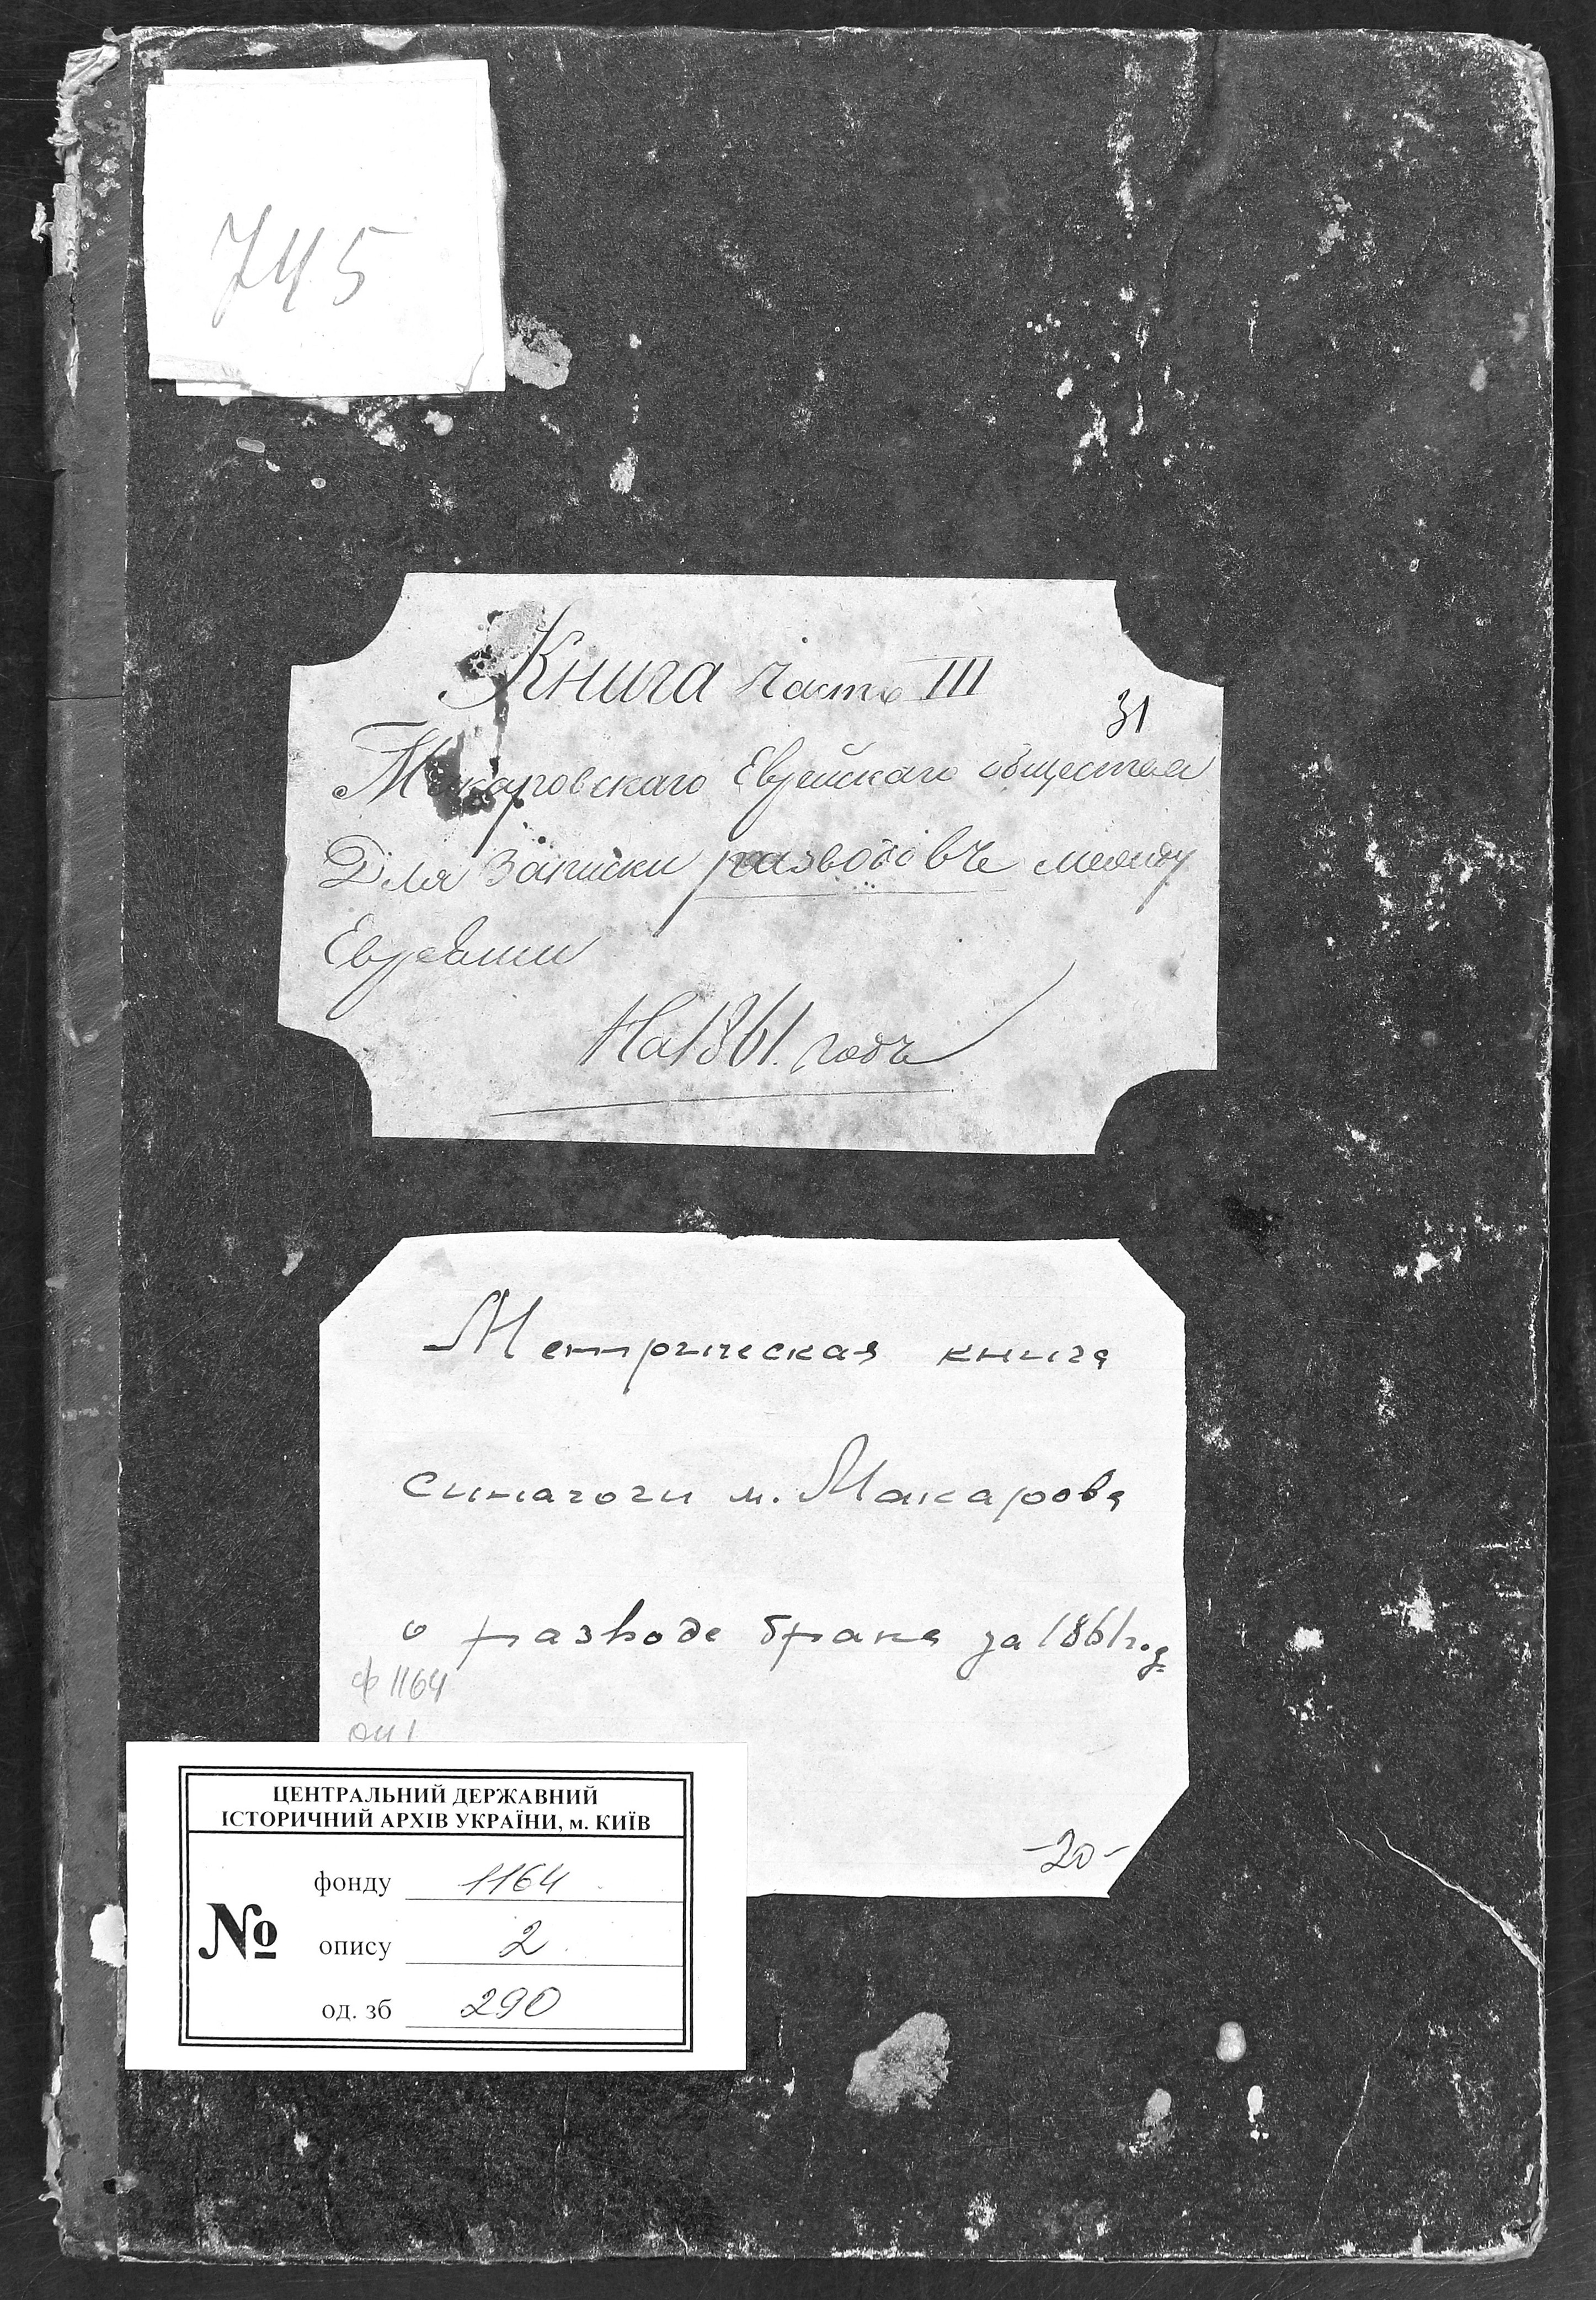 745
Книга часть III
31
Макаровскаго Еврейскаго общества
Для Записки разводовъ между
Евреями
На 1861. годъ
Метрическая книга
синагоги м. Макарова
о разводе брака за 1861 год
ф 1164
оп 1
-20-
ЦЕНТРАЛЬНИЙ ДЕРЖАВНИЙ
ІСТОРИЧНИЙ АРХІВ УКРАЇНИ, м. КИЇВ
фонду 1164
№ опису 2
од. зб 290